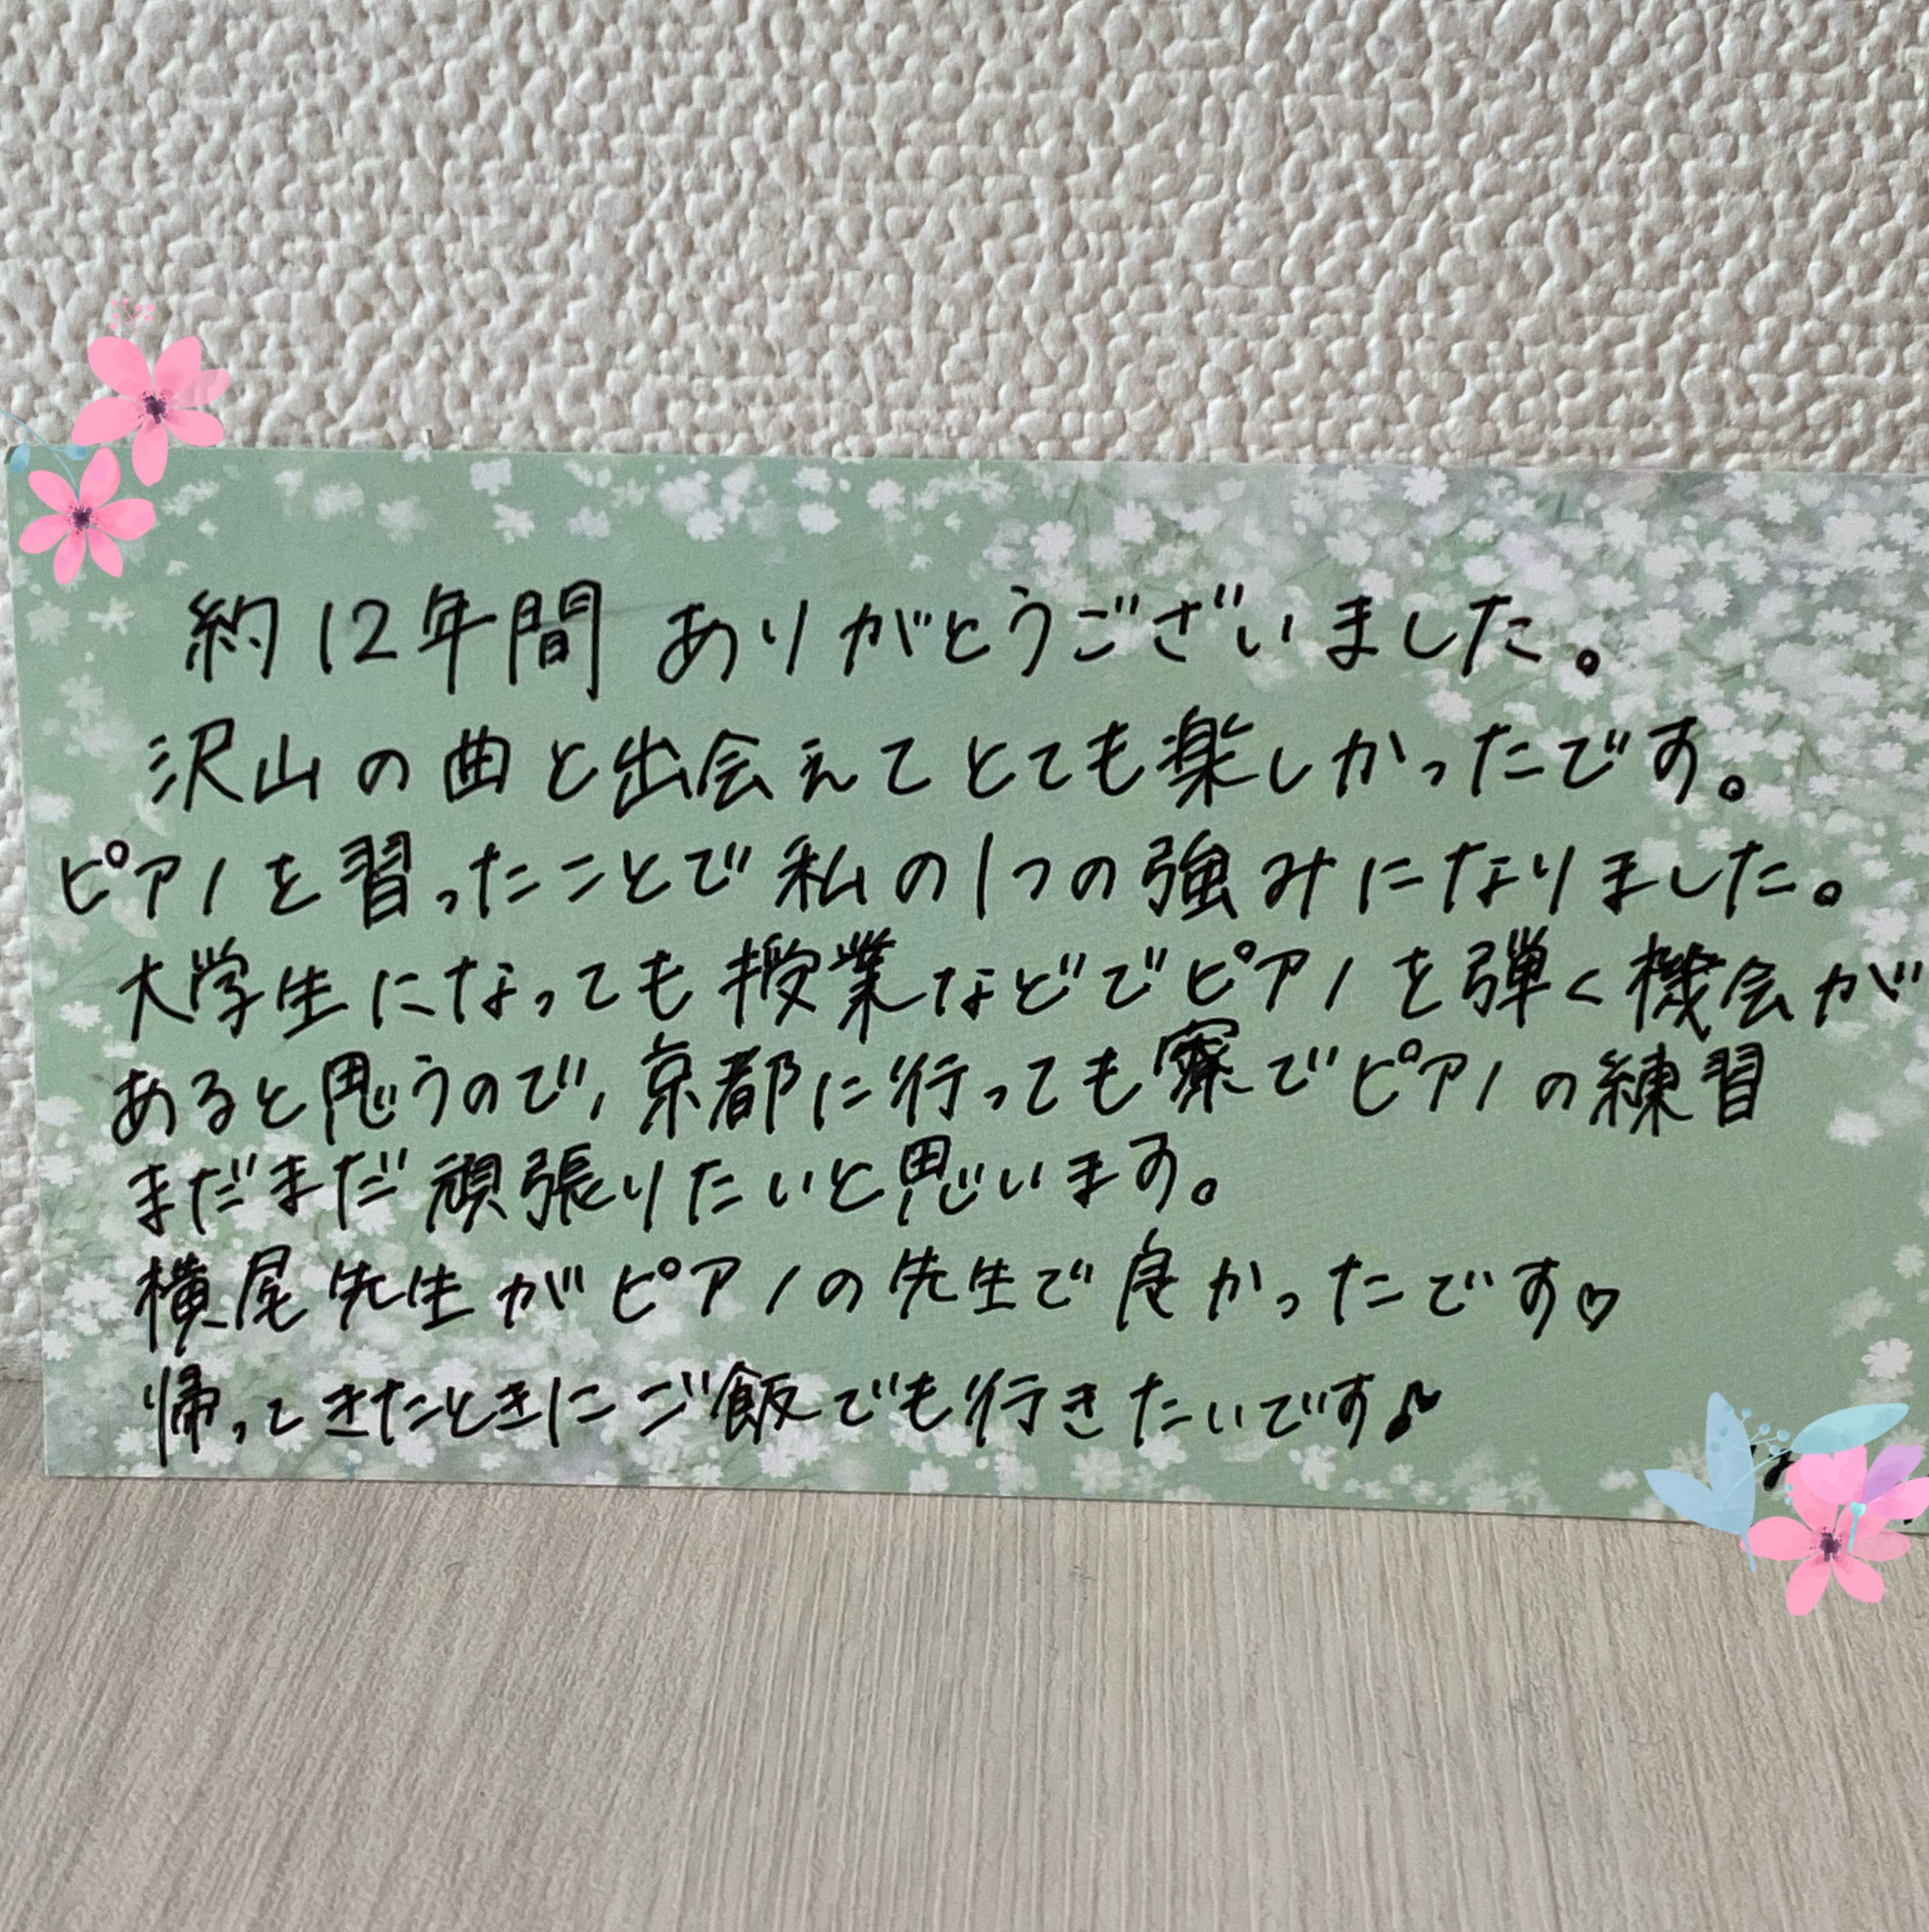 約12年間 ありがとうございました。
沢山の曲と出会えてとても楽しかったです。
ピアノを習ったことで私の1つの強みになりました。
大学生になっても授業などでピアノを弾く機会が
あると思うので、京都に行っても寮でピアノの練習
まだまだ頑張りたいと思います。
横尾先生がピアノの先生で良かったです♡
帰ってきたときにご飯でも行きたいです♪